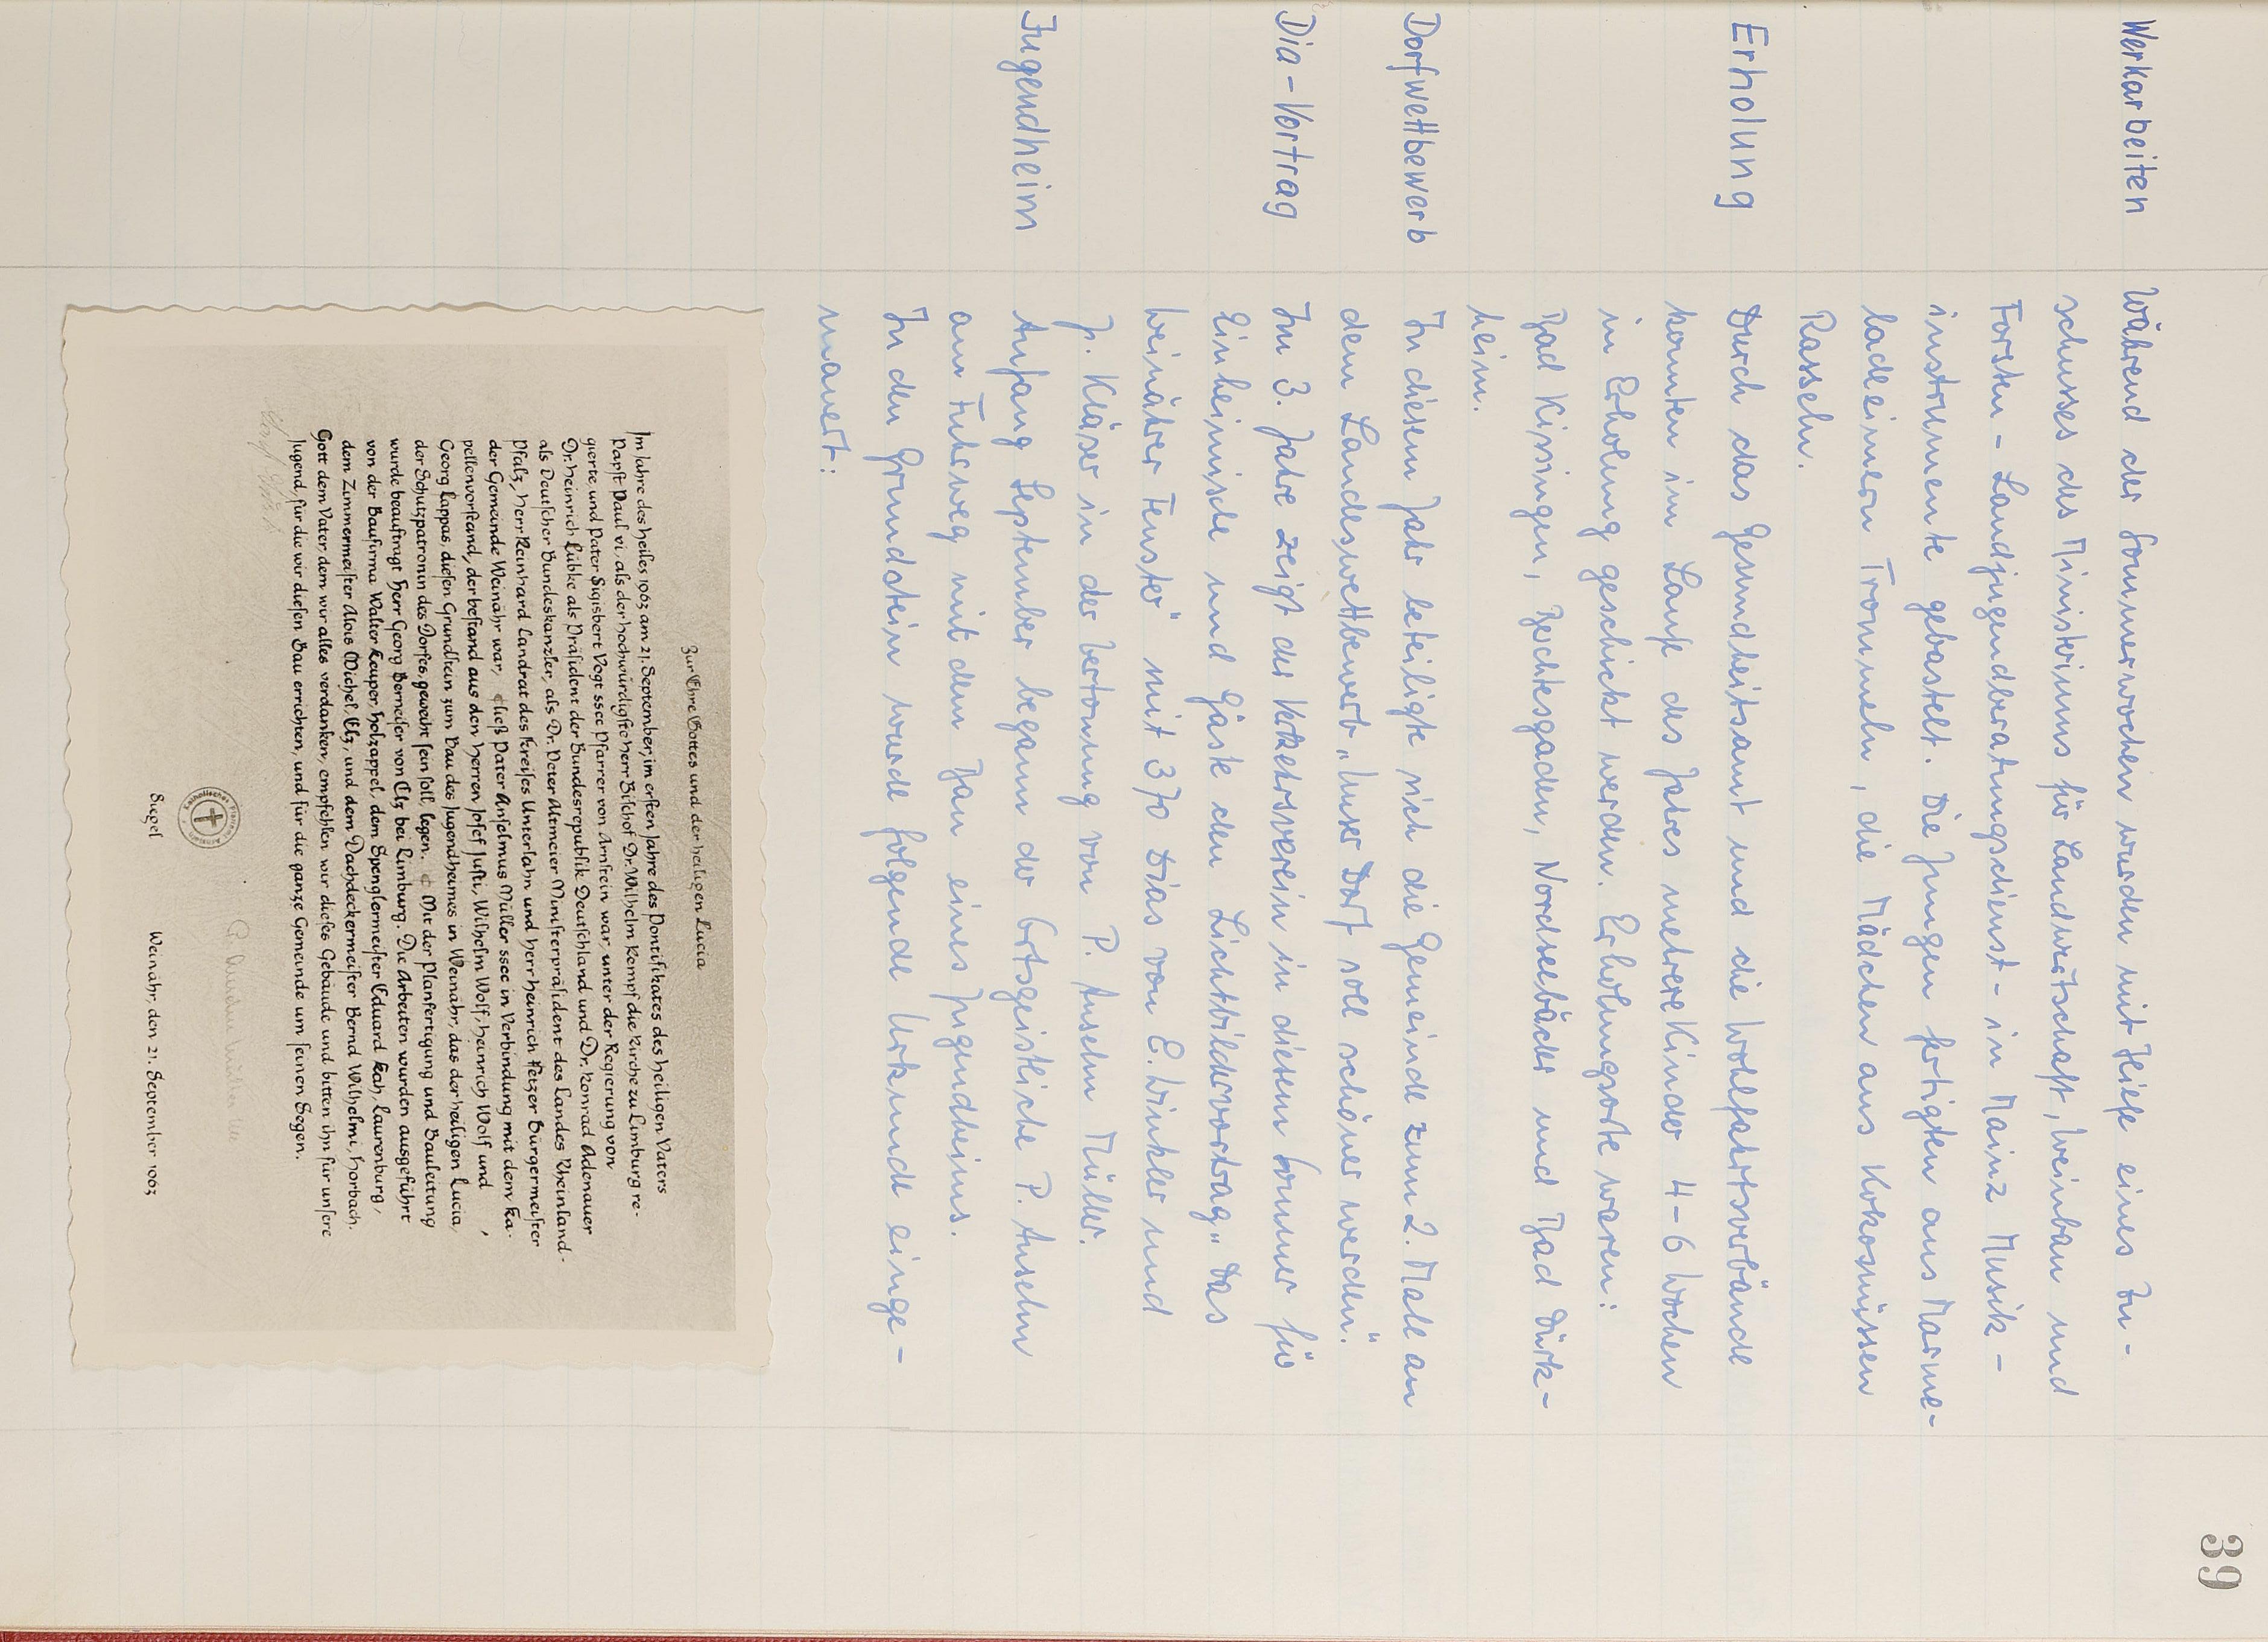 39
Werkarbeiten
Während der Sommerwochen wurden mit Hilfe eines Zu-
schusses des Ministeriums für Landwirtschaft, Weinbau und
Forsten - Landjugendberatungsdienst - in Mainz Musik-
instrumente gebastelt. Die Jungen fertigten aus Marme-
ladeeimern Trommeln, die Mädchen aus Kokosnüssen
Rasseln.
Erholung
Durch das Gesundheitsamt und die Wohlfahrtsverbände
konnten im Laufe des Jahres mehrere Kinder 4-6 Wochen
in Erholung geschickt werden. Erholungsorte waren:
Bad Kissingen, Berchtesgaden, Nordseebäder und Bad Dürk-
heim.
Dorfwettbewerb
In diesem Jahr beteiligte sich die Gemeinde zum 2. Male an
dem Landeswettbewerb „Unser Dorf soll schöner werden."
Dia-Vortrag
Im 3. Jahre zeigt der Verkehrsverein in diesem Sommer für
Einheimische und Gäste den Lichtbildervortrag „Das
Weinährer Fenster" mit 370 Dias von E. Winkler und
J. Kläser in der Vertonung von P. Anselm Müller.
Jugendheim
Anfang September begann der Ortsgeistliche P. Anselm
am Fuhrweg mit dem Bau eines Jugendheims.
In den Grundstein wurde folgende Urkunde einge-
mauert:
Zur Ehre Gottes und der heiligen Lucia
Im Jahre des Heiles 1963 am 21. September, im ersten Jahre des Pontifikates des heiligen Vaters
Papst Paul VI, als der hochwürdigste Herr Bischof Dr. Wilhelm Kempf die Kirche zu Limburg re-
gierte und Pater Sigisbert Vogt sscc Pfarrer von Arnstein war, unter der Regierung von
Dr. Heinrich Lübke als Präsident der Bundesrepublik Deutschland und Dr. Konrad Adenauer
als Deutscher Bundeskanzler, als Dr. Peter Altmeier Ministerpräsident des Landes Rheinland-
Pfalz, Herr Reinhard Landrat des Kreises Unterlahn und Herr Heinrich Fetzer Bürgermeister
der Gemeinde Weinähr war, ließ Pater Anselmus Müller sscc in Verbindung mit dem Ka-
pellenvorstand, der bestand aus den Herren Josef Justi, Wilhelm Wolf, Heinrich Wolf und
Georg Lappas, diesen Grundstein zum Bau des Jugendheimes in Weinähr, das der heiligen Lucia,
der Schutzpatronin des Dorfes geweiht sein soll, legen. Mit der Planfertigung und Bauleitung
wurde beauftragt Herr Georg Berneiser von Elz bei Limburg. Die Arbeiten wurden ausgeführt
von der Baufirma Walter Keuper, Holzappel, dem Spenglermeister Eduard Kah, Laurenburg,
dem Zimmermeister Alois Michel, Elz, und dem Dachdeckermeister Bernd Wilhelmi, Horbach.
Gott dem Vater, dem wir alles verdanken, empfehlen wir dieses Gebäude und bitten ihn für unsere
Jugend, für die wir diesen Bau errichten, und für die ganze Gemeinde um seinen Segen.
Siegel
Weinähr, den 21. September 1963